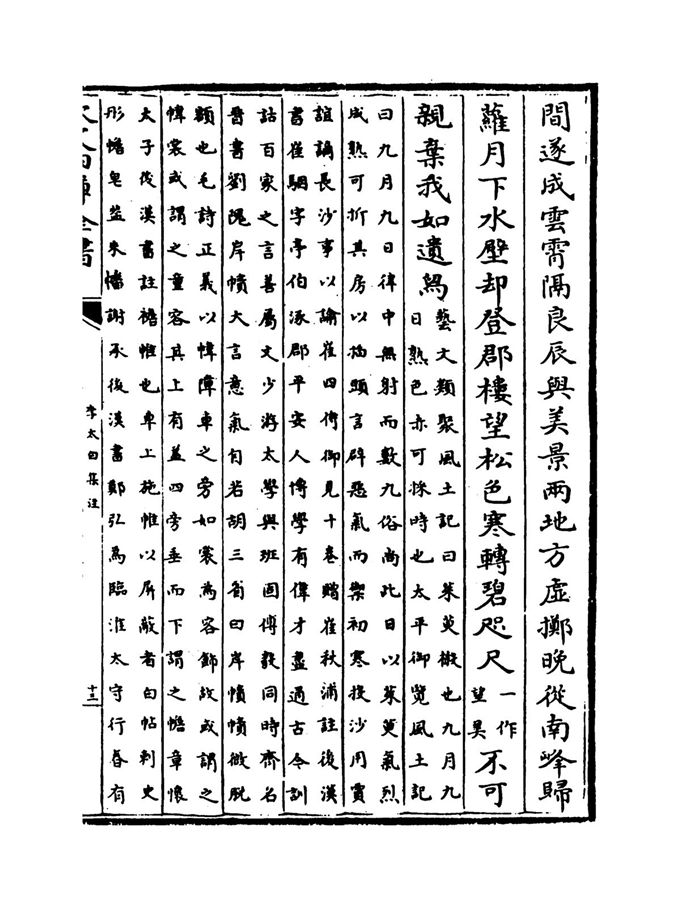 間遂成雲霄隔良辰與美景兩地方虛擲晚從南峰歸
蘿月下水壁却登郡樓望松色寒轉碧咫尺一作望不可
親棄我如遺舄藝文類聚風土記曰茱萸椒也九月九
日熟色赤可採時也太平御覽風土記
曰九月九日律中無射而數九俗尚此日以茱萸氣烈
成熟可折其房以插頭言辟惡氣而禦初寒投沙用賈
誼謫長沙事以諭崔四侍御見十卷贈崔秋浦註後漢
書崔駰字亭伯涿郡平安人博學有偉才盡通古今訓
詁百家之言善屬文少游太學與班固傅毅同時齊名
晉書劉隗岸幘大言意氣自若胡三省曰岸幘幘微脫
額也毛詩正義以幃障車之旁如裳為容飾故或謂之
幃裳或謂之童容其上有蓋四旁垂而下謂之襜章懷
太子後漢書註襜帷也車上施帷以屏蔽者白帖刺史
彤襜皂蓋朱幡謝承後漢書鄭弘為臨淮太守行春有
四庫全書
李太白集注
十三